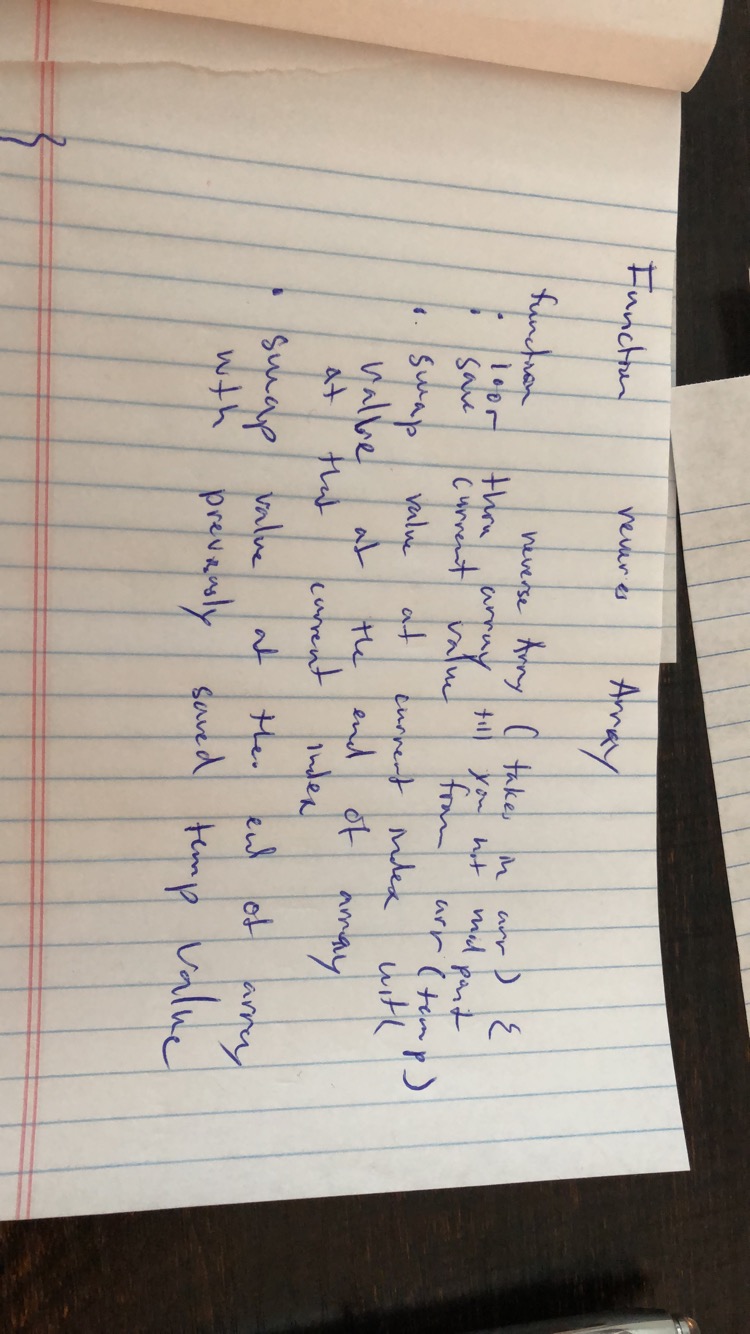 Function reverses Array
function reverse Array ( takes in arr ) {
• loop thru array till you hit mid point
• save current value from arr (temp)
• swap value at current index with
value at the end of array
at that current index
• swap value at the end of array
with previously saved temp value
}